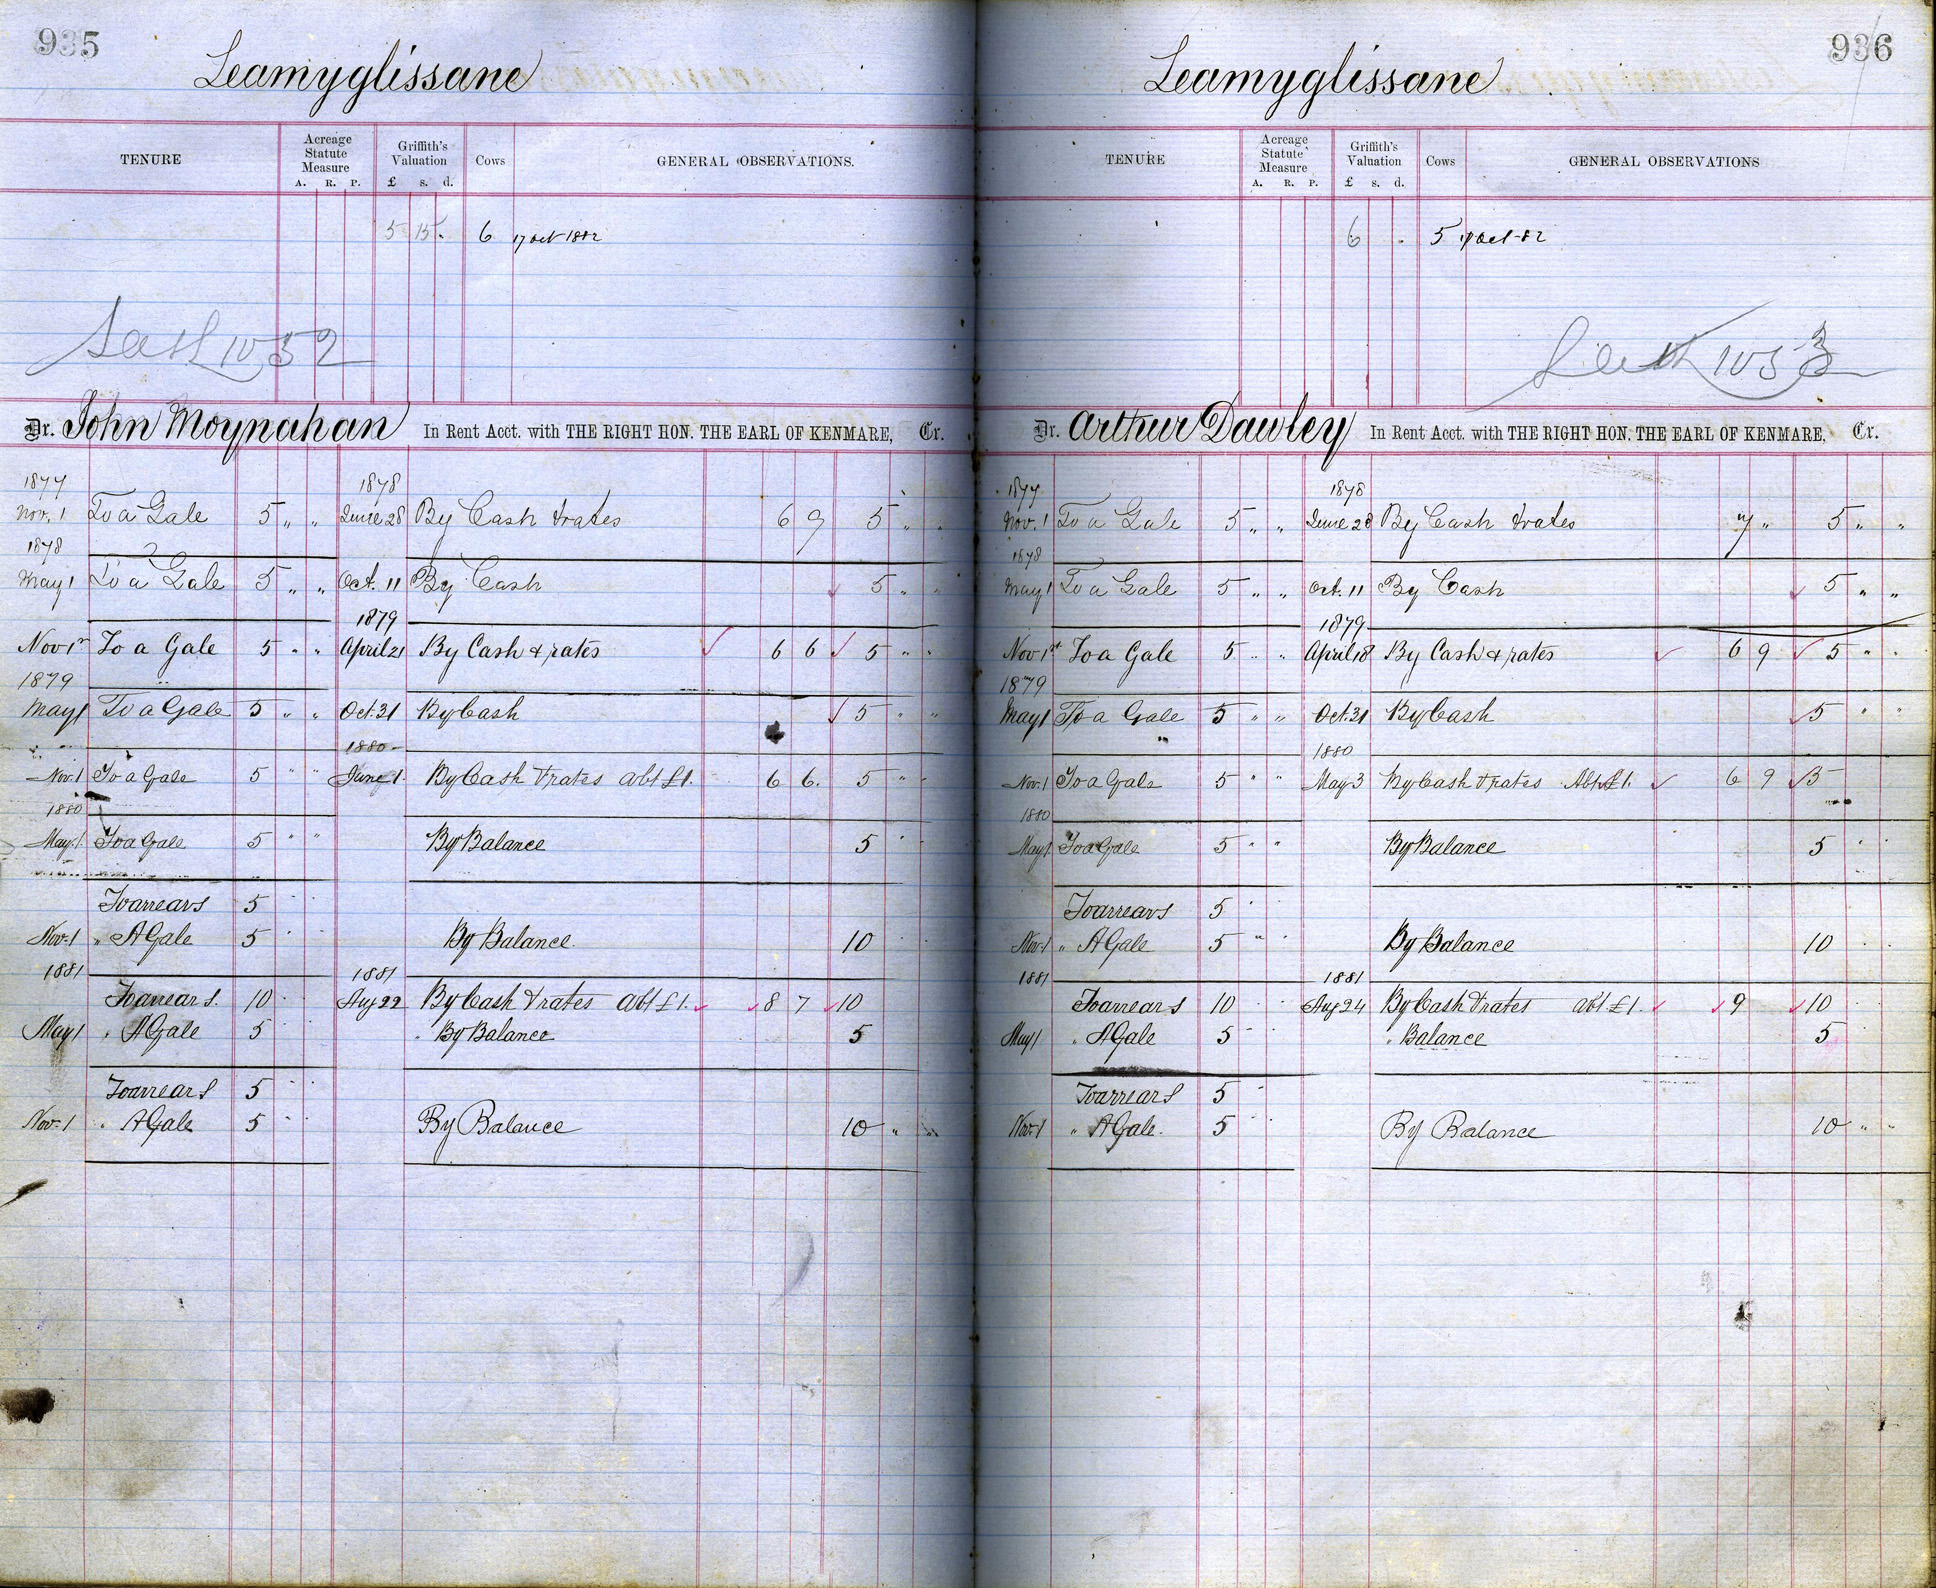 935
Leamyglissane
TENURE
Acreage Statute Measure
A. R. P.
Griffith's Valuation
£ s. d.
Cows
GENERAL OBSERVATIONS.
5 15 . 6 17 Oct 1882
1052
Dr. John Moynahan In Rent Acct. with THE RIGHT HON. THE EARL OF KENMARE, Cr.
1877 1878
Nov. 1 To a Gale 5 " " June 28 By Cash & rates 6 9 5 " "
1878
May 1 To a Gale 5 " " Oct. 11 By Cash 5 " "
1879
Nov 1st To a Gale 5 " " April 21 By Cash & rates 6 6 5 " "
1879
May 1 To a Gale 5 " " Oct. 31 By Cash 5 " "
1880
Nov. 1 To a Gale 5 " " June 1 By Cash & rates abt £1. 6 6. 5 " "
1880
May. 1 To a Gale 5 " " By Balance 5
To arrears 5
Nov. 1 " A Gale 5 By Balance. 10
1881 1881
To arrears. 10 Aug 22 By Cash & rates abt £1. 8 7 10
May 1 " A Gale 5 " By Balance 5
To arrears 5
Nov. 1 " A Gale 5 By Balance 10 " "
936
Leamyglissane
TENURE
Acreage Statute Measure
A. R. P.
Griffith's Valuation
£ s. d.
Cows
GENERAL OBSERVATIONS
6 . 5 17 Oct-82
1053
Dr. Arthur Dawley In Rent Acct. with THE RIGHT HON. THE EARL OF KENMARE, Cr.
1877 1878
Nov. 1 To a Gale 5 " " June 28 By Cash & rates 7 " 5 " "
1878
May 1 To a Gale 5 " " Oct. 11 By Cash 5 " "
1879
Nov 1st To a Gale 5 " " April 18 By Cash & rates 6 9 5 " "
1879
May 1 To a Gale 5 " " Oct. 31 By Cash 5 " "
1880
Nov. 1 To a Gale 5 " " May 3 By Cash & rates Abt £1. 6 9 5
1880
May 1 To a Gale 5 " " By Balance 5
To arrears 5
Nov. 1 " A Gale 5 " By Balance 10
1881 1881
To arrears 10 Aug 24 By Cash & rates abt £1. 9 10
May 1 " A Gale 5 " Balance 5
To arrears 5
Nov. 1 " A Gale. 5 By Balance 10 " "